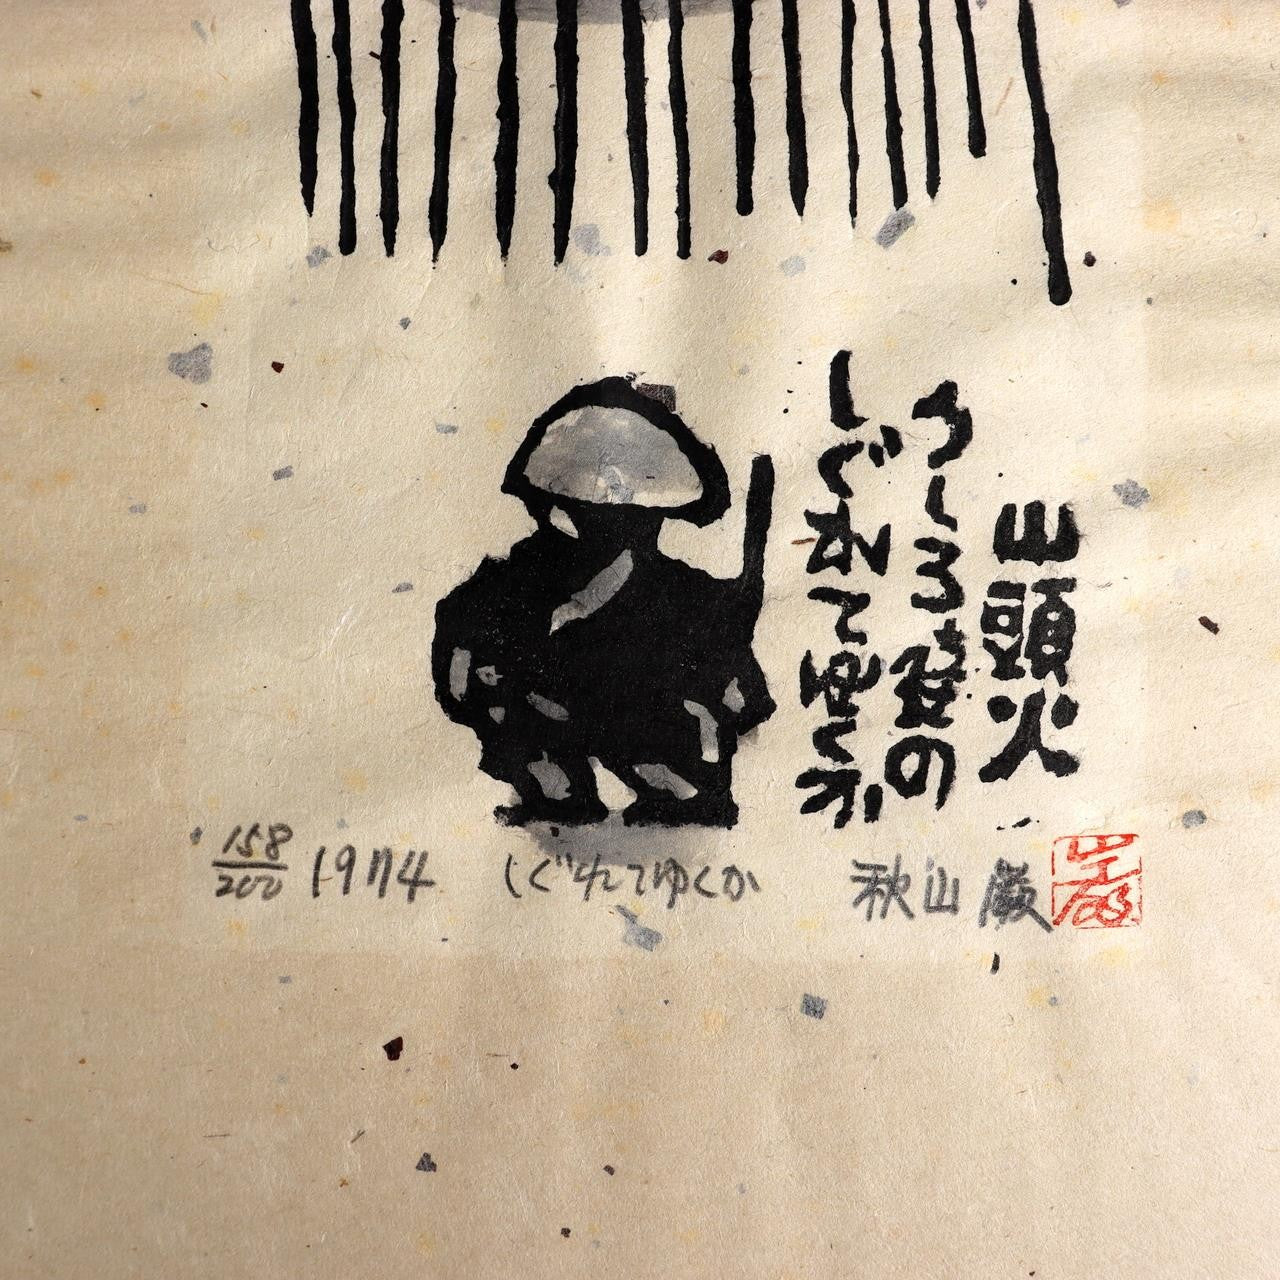 山頭火
うしろ姿の
しぐれてゆくか
158/200 1974 しぐれてゆくか 秋山巌